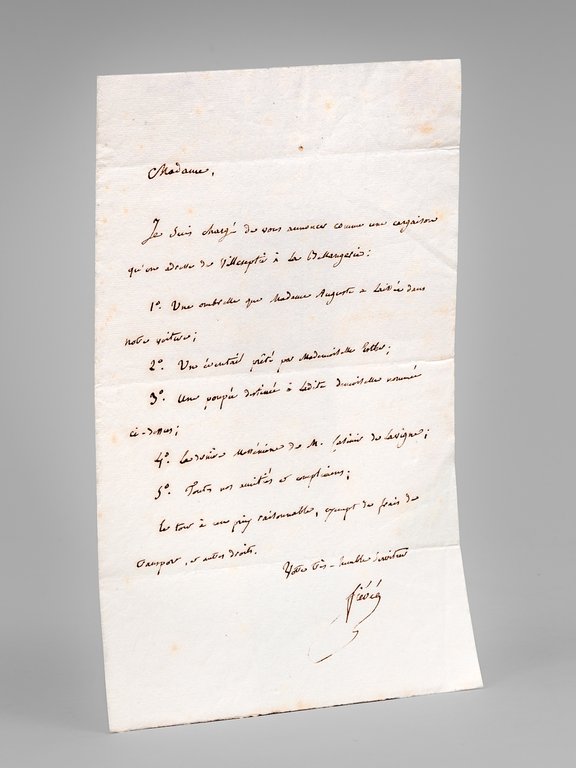 Madame,
Je suis chargé de vous annoncer comme une cargaison
qu'on adresse de à La :
1°. Une ombrelle que Madame Auguste a laissée dans
notre voiture;
2°. Un éventail prêté par Mademoiselle ;
3°. Une poupée destinée à ladite demoiselle nommée
ci-dessus;
4°. La dernière Messénienne de M. Casimir de Lavigne;
5°. Toutes nos amitiés et complimens;
Le tout à un prix raisonnable, exempt de frais de
transport, et autres droits.
Votre très-humble serviteur
Fiévée